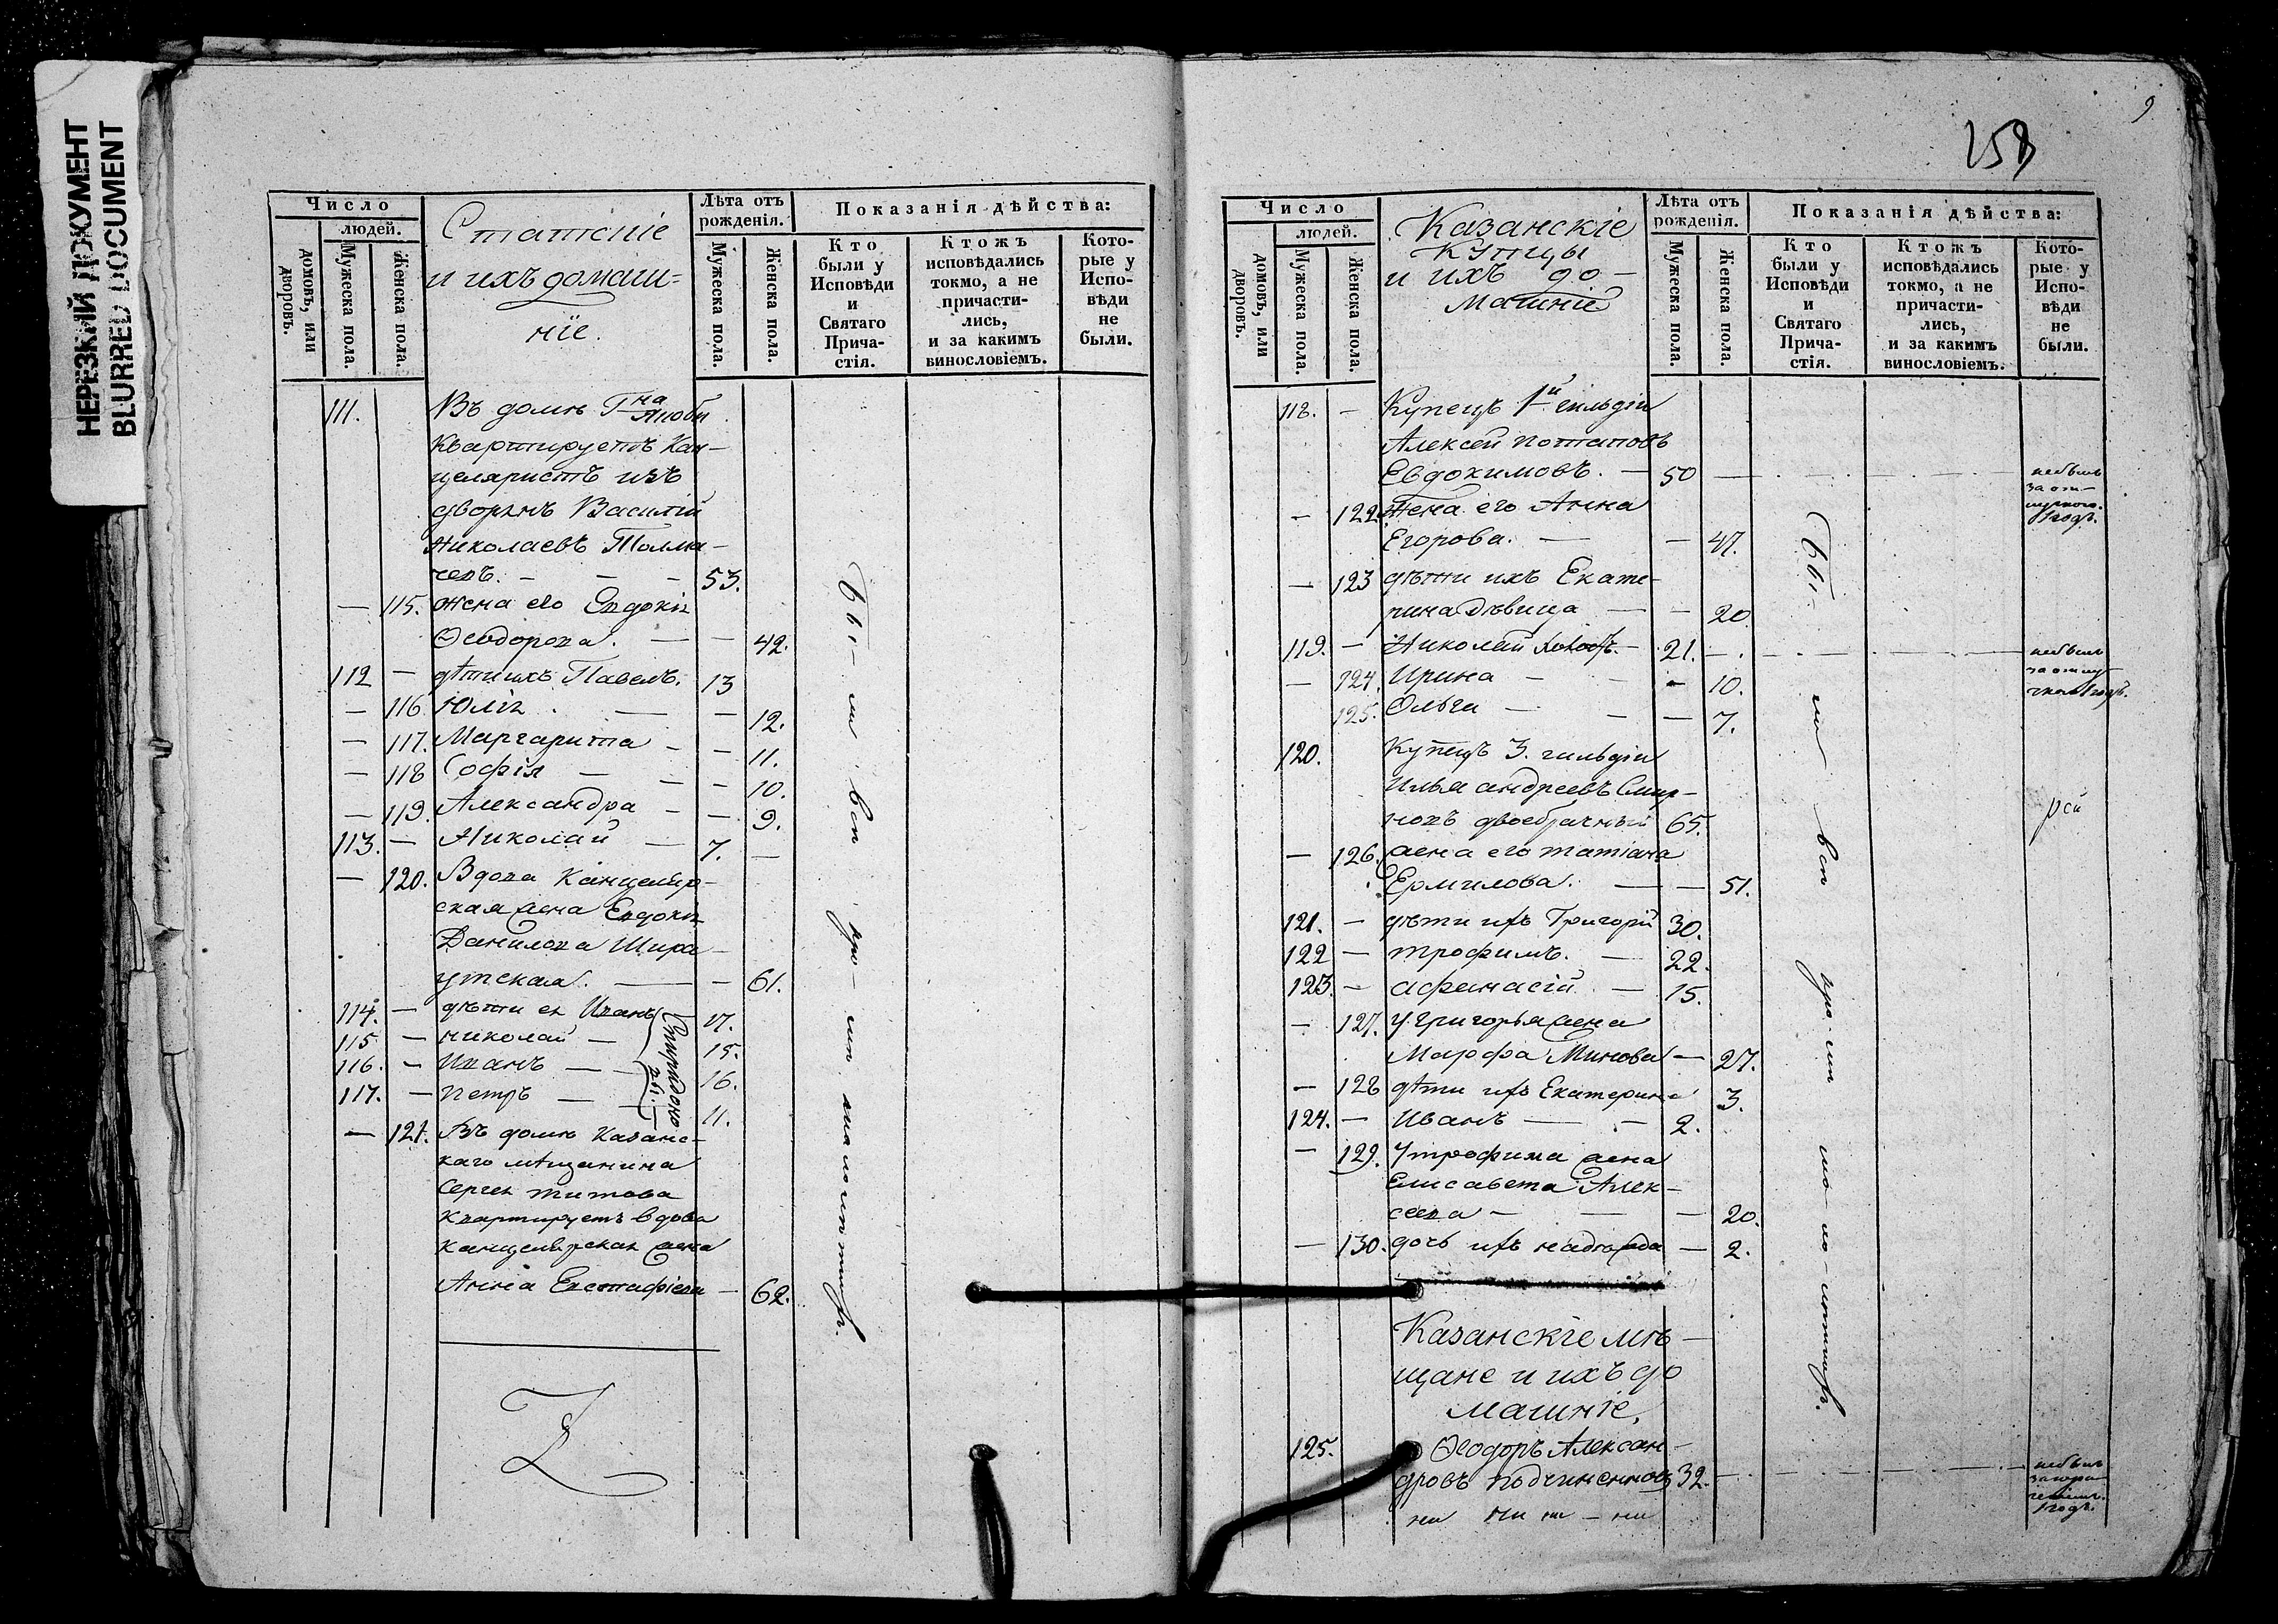 НЕРЕЗКИЙ ДОКУМЕНТ
BLURRED DOCUMENT
Число
людей.
домовъ, или дворовъ.
Мужеска пола.
Женска пола.
Статскіе
и ихъ домаш-
ніе.
Лѣта отъ рожденія.
Мужеска пола.
Женска пола.
Показанія дѣйства:
Кто были у Исповѣди и Святаго Прича-стія.
Ктожъ исповѣдались токмо, а не причасти-лись, и за какимъ винословіемъ.
Кото-рые у Испо-вѣди не были.
111. Въ домѣ Г-на
Квартируетъ Кан-
целяристъ изъ
дворянъ Василій
Николаевъ Толма-
чевъ. — — — 53.
— 115. жена его Евдокія
Ѳеодорова. — — 42.
112 — дѣти ихъ Павелъ. 13
— 116 Юлія. — — 12.
— 117. Маргарита — — 11.
— 118 Софія — — — 10.
— 119. Александра — — 9.
113. — Николай — 7. —
— 120. Вдова Канцеляр-
ская жена Евдокія
Данилова
— — 61.
114. — дѣти ея Иванъ 17.
115 — Николай — 15.
116. — Иванъ — — 16.
117. — Петръ — — 11.
Спиридоно
вы.
— 121. Въ домѣ Казанс-
каго мѣщанина
Сергея Титова
Квартируетъ вдова
Канцелярская жена
Анна Евстафіева — 62.
бы — ли вси
9
159
Число
людей.
домовъ, или дворовъ.
Мужеска пола.
Женска пола.
Казанскіе
Купцы
и ихъ до-
машніе
Лѣта отъ рожденія.
Мужеска пола.
Женска пола.
Показанія дѣйства:
Кто были у Исповѣди и Святаго Прича-стія.
Ктожъ исповѣдались токмо, а не причасти-лись, и за какимъ винословіемъ.
Кото-рые у Испо-вѣди не были.
118. — Купецъ 1-й гильдіи
Алексей Потаповъ
Евдокимовъ. — 50 — небылъ
за от-
лучкою.
1 годъ.
— 122. Жена его Анна
Егорова. — — 47.
— 123 дѣти ихъ Екате-
рина Дѣвица — — 20
119. — Николай — 21. — небылъ
за отлу
чкою 1 годъ.
— 124. Ирина — — — 10.
125. Ольга — — — 7.
120. Купецъ 3. гильдіи
Илья Андреевъ Смир-
новъ двоебрачный 65.
— 126. жена его Татіана
Ермилова. — — 51.
121. — дѣти ихъ Григорій 30.
122 — Трофимъ. — 22.
123. — Афанасій — 15.
— 127. У Григорья жена
Марфа Минова — 27.
— 128 дѣти ихъ Екатерина 3.
124. — Иванъ — — 2.
— 129. У Трофима жена
Елисавета Алек-
сеева — — — 20.
— 130. дочь ихъ Надежда — 2.
Казанскіе мѣ-
щане и ихъ до
машніе.
125. Ѳеодоръ Алексан-
дровъ Подчиненновъ 32. — небылъ
1 годъ.
бы — ли вси